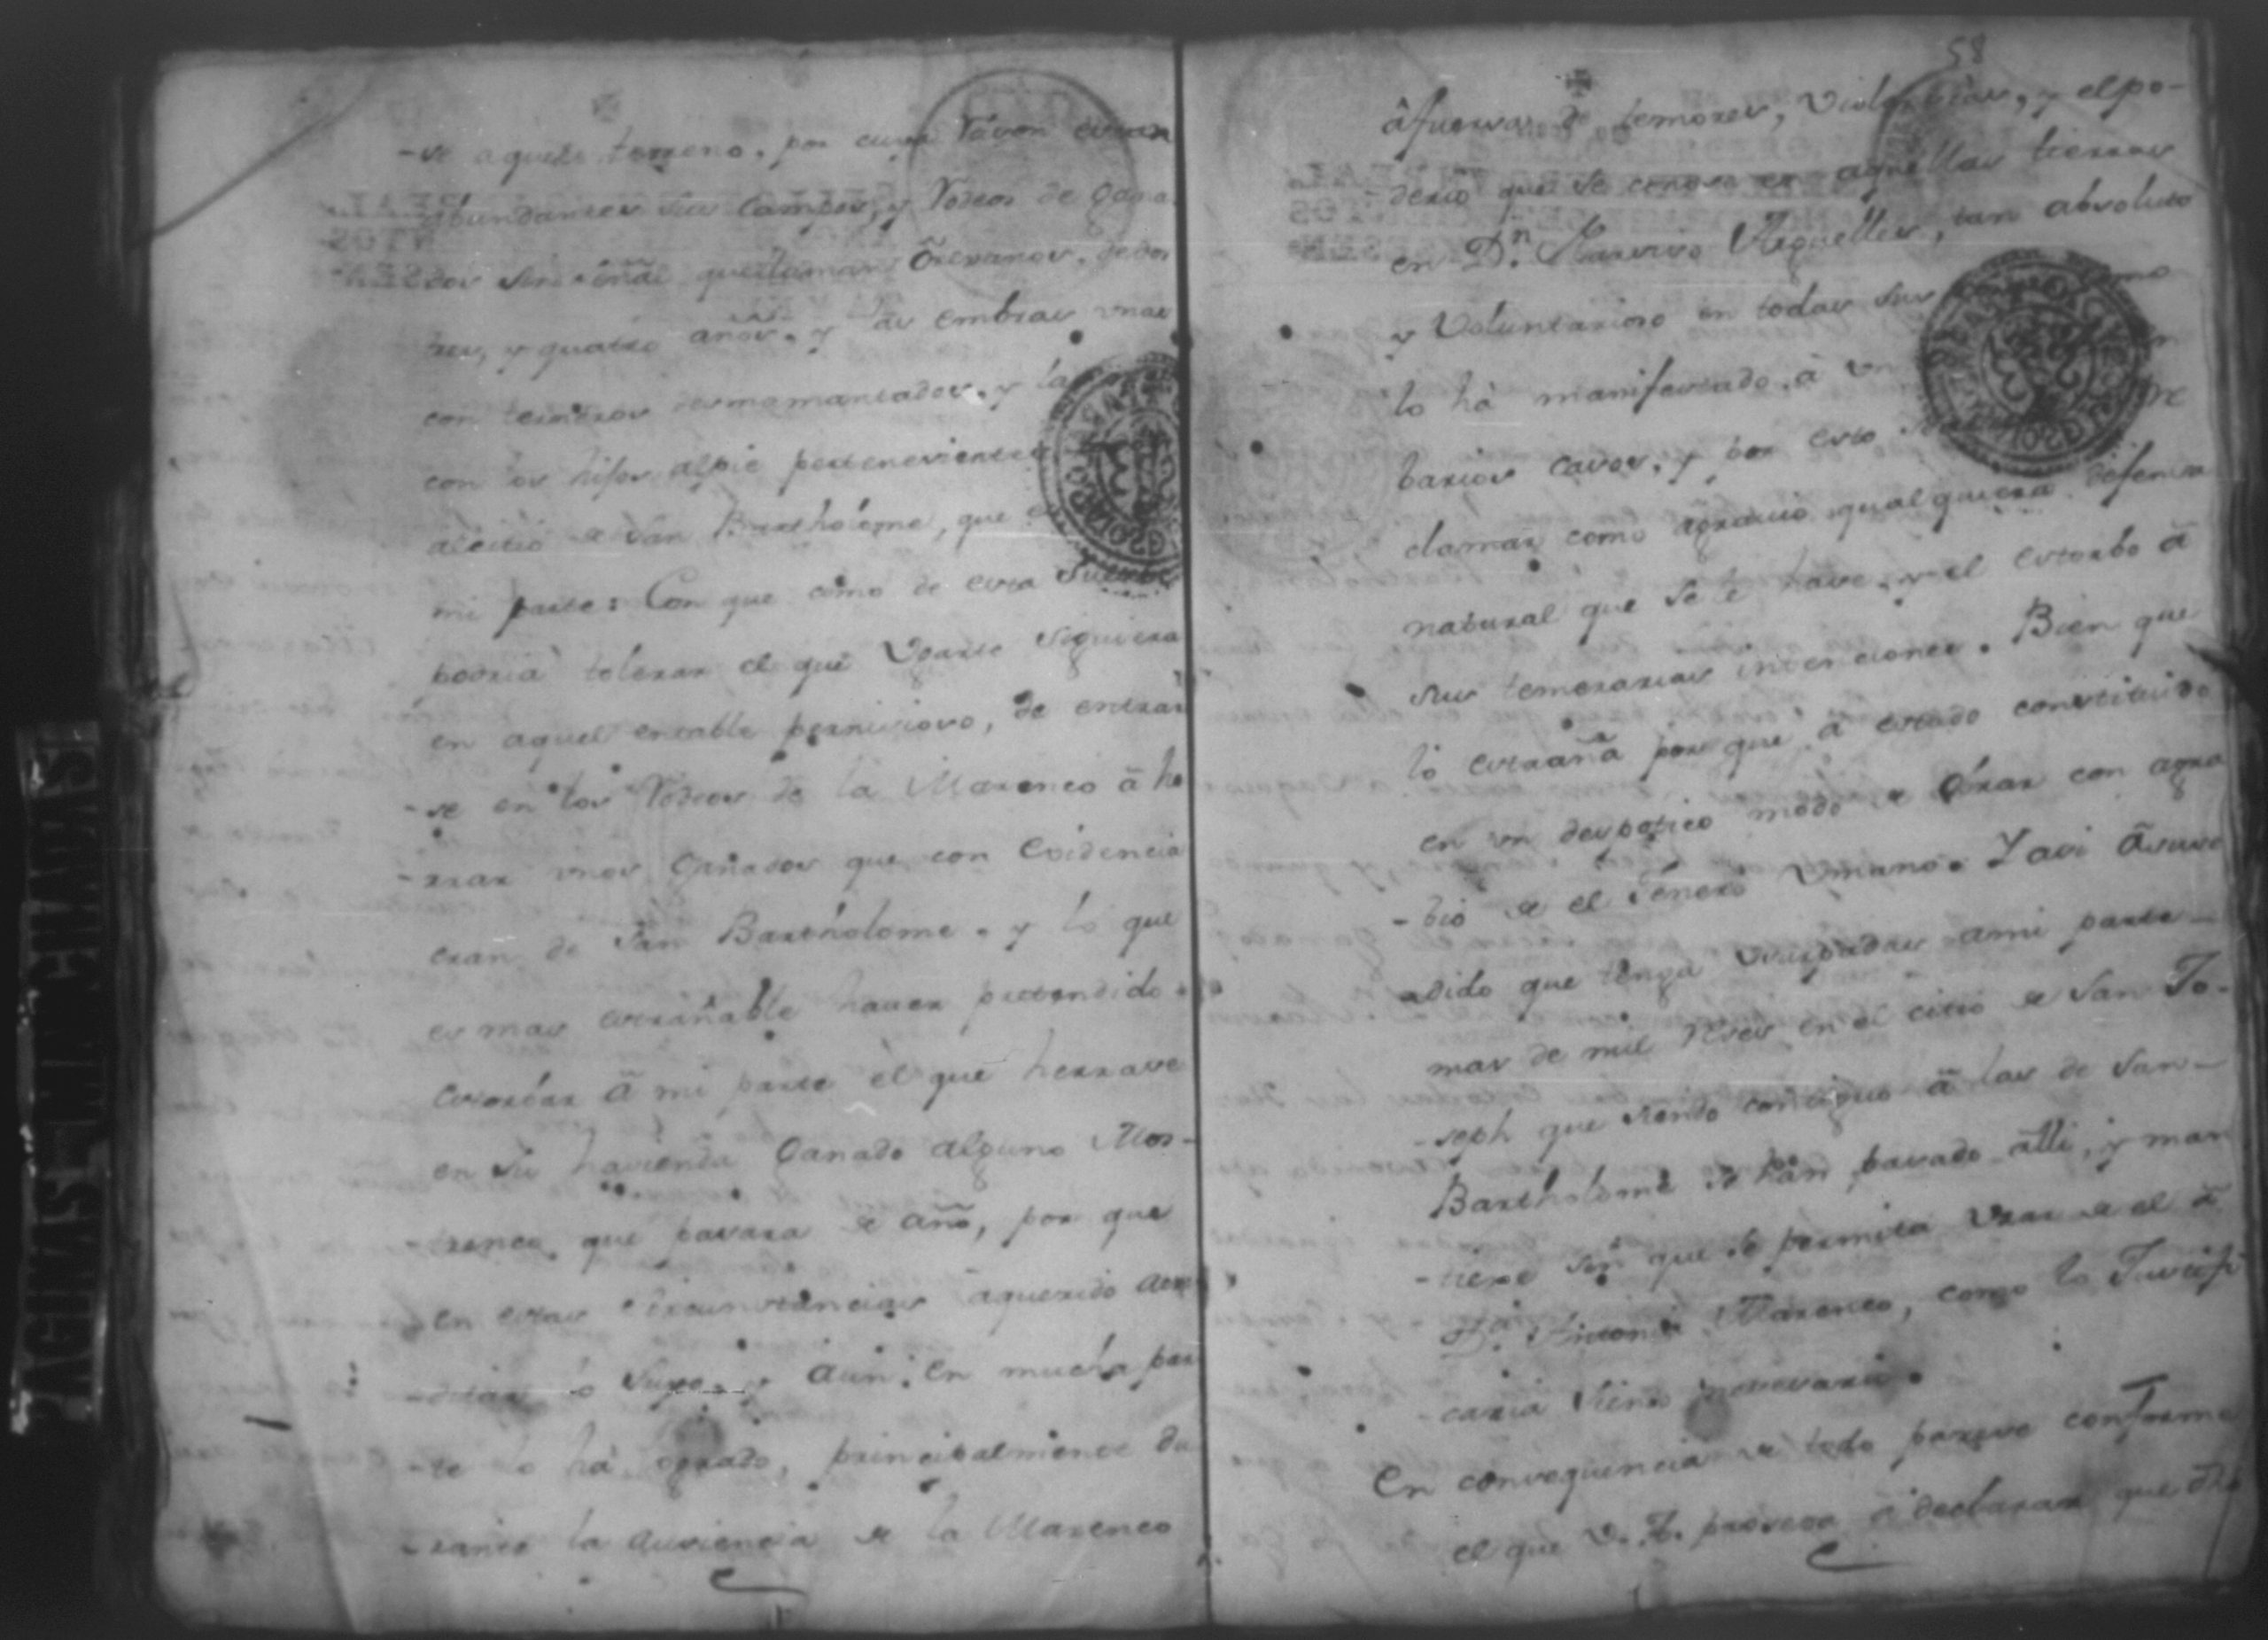 -se aquel terreno. por cuya Razon estan
abundantes sus Campos, y Rodeos de Gana
dos sin señal que llaman Orexanos. de dos
tres, y quatro años. y las embras unas
con terneros desmamantados. y las
con los hijos alpie pertenecientes
alcitio de San Bartholome, que es
mi parte: Con que como de esta Suerte
podria tolerar el que Ugarte Siguiera
en aquel entable pernicioso, de entrar
-se en los Rodeos de la Marenco â he
-rrar unos Ganados que con Evidencia
eran de San Bartholome. y lo que
es mas estrañable haver pretendido
estorbar â mi parte el que herrase
en su hacienda Ganado alguno Mos-
-trenco que pasara de año, por que
en estas circunstancias aquerido
lo Suyo, y aun en mucha par
-te lo hà logrado, principalmente du
-rante la ausiencia de la Marenco
58
âfuersas de temores, Violencias, y elpo-
-derio que se conose en aquellas tierras
en Dn. Narciso Arguelles, tan absoluto
y Voluntarioso en todas sus
lo hà manifestado à un
barios casos, y por esto
clamar como agravio qualquiera defensa
natural que se le hase, y el estorbo â
sus temerarias intenciones. Bien que
lo estraña por que à estado constituido
en un despotico modo de obrar con agra
-bio de el Genero Umano. Y asi
-dido que tenga Usurpadas ami parte
mas de mil reses en el citio de San Jo-
-seph que siendo contiguo â las de San
Bartholomè se hàn pasado alli, y man
-tiene sin que se permita Usar de el â
Da. Antonia Marenco, como lo Justifi
-caria siendo necesario.
En consequencia de todo parese conforme
el que V. A. provea ò declarar que dho